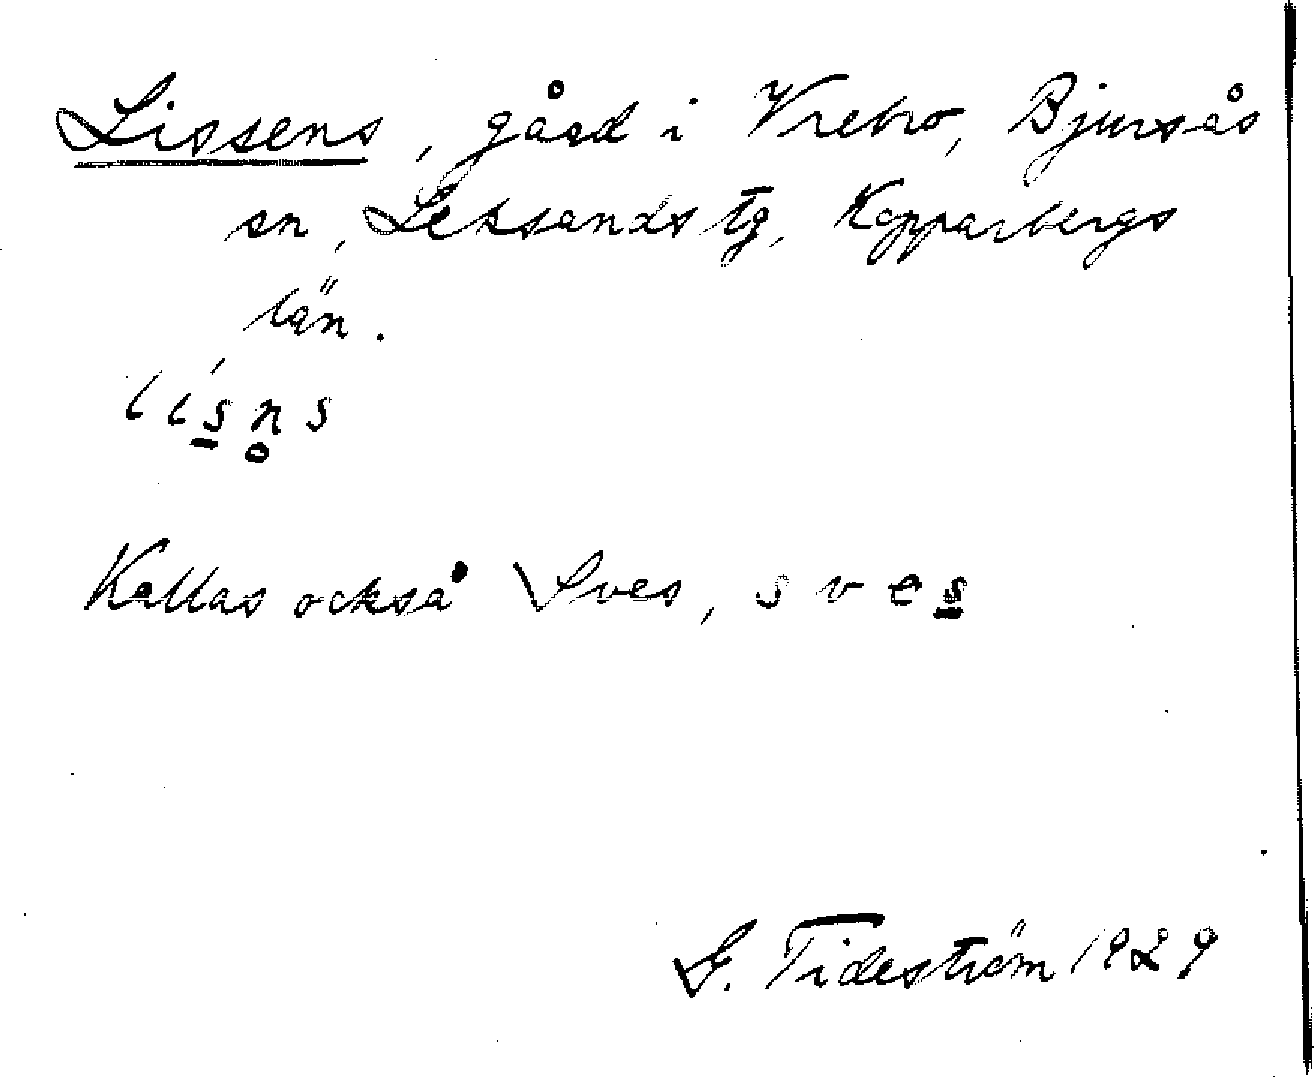 Lissens, gård i Vrebro, Bjursås
sn, Leksands tg, Kopparbergs
län.
lís̲n̥s
Kallas också Sves, sves̲
G. Tideström 1929